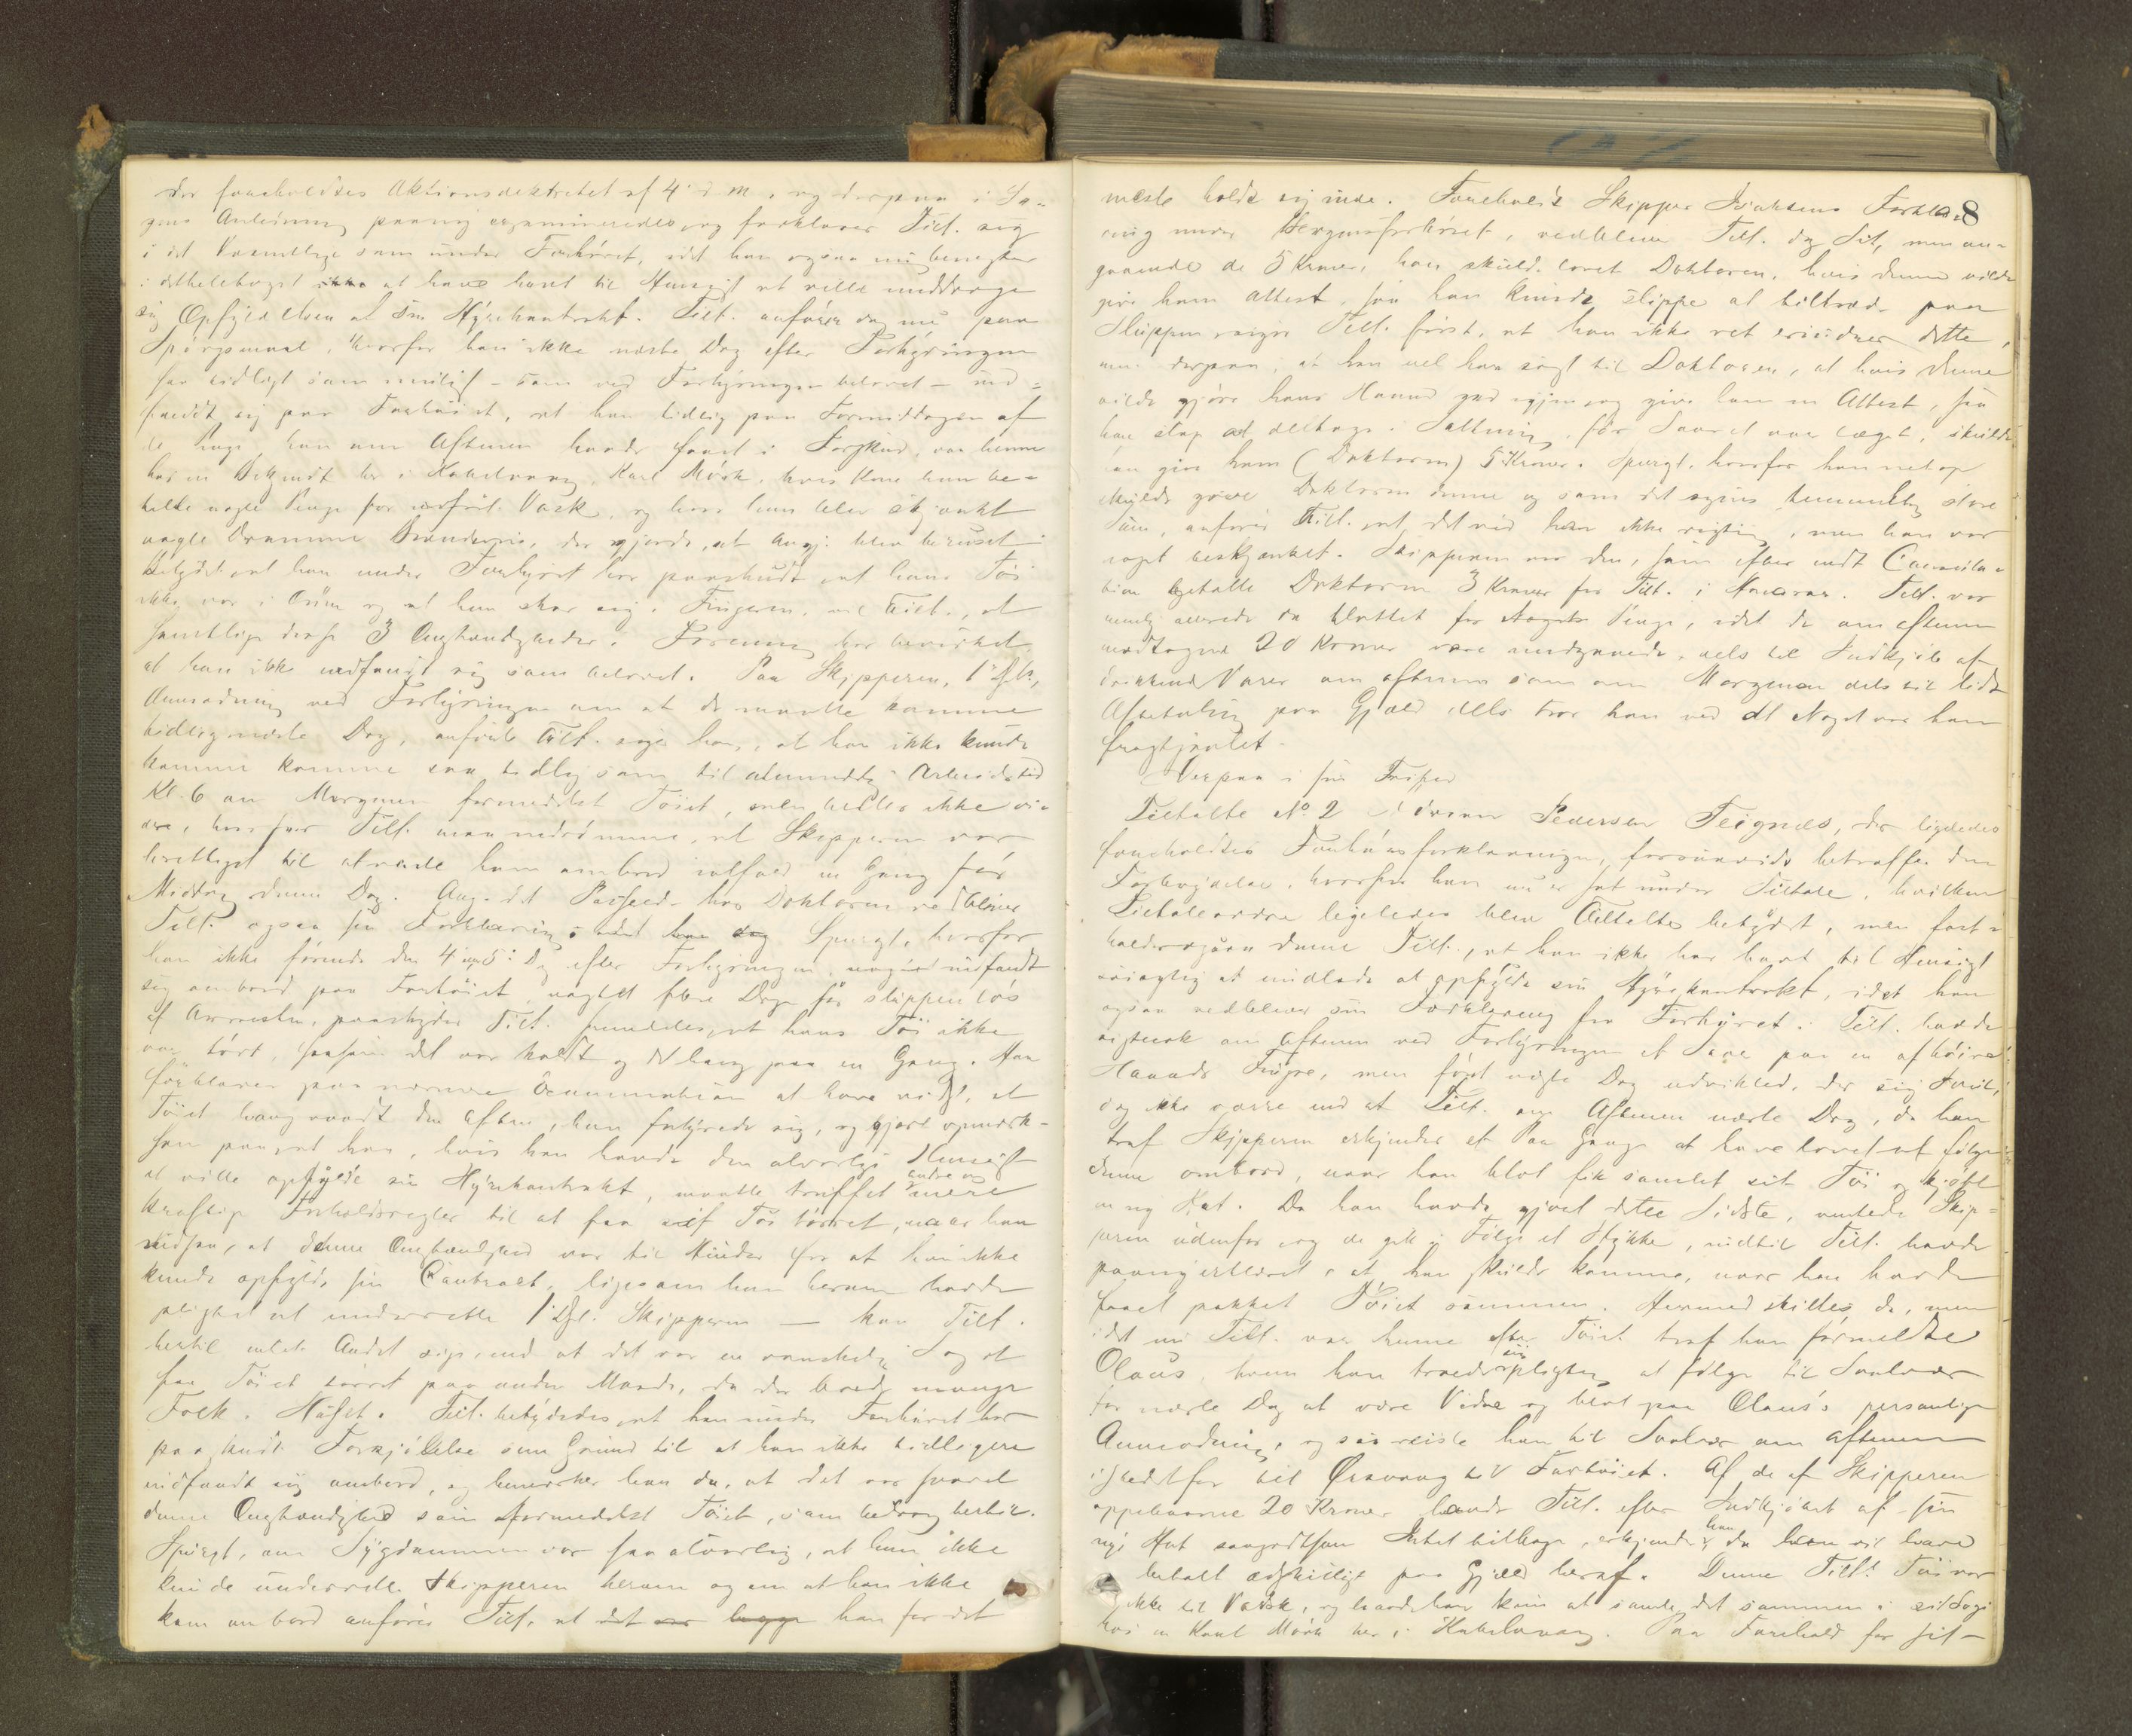 der foreholdtes Aktionsdekretet af 4' d. M. og derpaa i Sa-
gens Anledning paany examineredes, og forklarer Tilt. sig
i det Væsentlige som under Forhöret, idet han ogsaa nu benegter
i detheletaget at have havt til Hensigt at ville unddrage
sig Opfyldelsen af sin Hyrekontrakt. Tilt. anfører dog nu paa
Spörgsmaal, hvorfor han ikke næste Dag efter Forhyringen
saa tidligt som muligt - som ved Forhyringen belovet - ind-
fandt sig paa Fartöiet, at han tidlig paa Formiddagen af
de Penge, han om Aftenen havde faaet i Forskud, var henne
hos en Bekjendt her i Kabelvaag, Karl Mörk, hvis Kone han be-
talte nogle Penge for udfört Vask, og hvor han blev skjænket
nogle Dramme Brændevin, der gjorde, at Angj. blev beruset.
Betydet, at han under Forhöret har paaskudt at hans Töi
ikke var i Orden og at han skar sig i Fingeren, vil Tilt., at
samtlige disse 3 Omstændigheder i Forening har bevirket,
at han ikke indfandt sig som belovet. Paa Skipperen,
Anmodning ved Forhyringen om at de maatte komme
tidlig næste Dag, anförte Tilt. siger han, at han ikke kunde
komme komme saa tidlig som til almindelig Arbeidstid
Kl. 6 om Morgenen formedelst Töiet, men heller ikke vi-
dere, hvorfor Tilt. maa indrömme, at Skipperen var
berettiget til at vente ham ombord ialfald en Gang för
Middag denne Dag. Ang. det Passerede hos Doktoren vedbliver
Tilt. ogsaa sin Forklaring. Spurgt, hvorfor
han ikke förend den 4 à 5' Dag efter Forhyringen indfandt
sig ombord paa Fartöiet, nogle flere Dage för slippen lös
af Arresten, paaskyder Tilt. fremdeles, at hans Töi ikke
var tört, saasom det var koldt og det hang paa en Gang. Han
forklarer paa nærmere Examination at have vidst, at
Töiet hang vaadt den Aften, han forhyrede sig, og gjort opmærk-
som paa, at han, hvis han havde den alvorlige Hensigt
at ville opfylde sin Hyrekontrakt, maatte truffet andre og mere
kraftige Forholdsregler til at faa sit Töi törret, naar han
vidste, at denne Omstændighed var til Hinder for at han ikke
kunde opfylde sin Contract, ligesom han herom havde
pligtet at underrette Skipperen — kan Tilt.
hertil intet Andet sige, end at det var en vanskelig Sag at
faa Töiet törret paa anden Maade, da der boede mange
Folk i Huset. Tilt. betydedes, at han under Forhöret har
paaskudt Forkjölelse som Grund til at han ikke tidligere
indfandt sig ombord, og bemærker han da, at det var saavel
denne Omstændighed som formedelst Töiet, som bidrog hertil.
Spurgt, om Sygdommen var saa alvorlig, at han ikke
kunde underrette Skipperen herom og om at han ikke
kom ombord anförer Tilt., at det var han for det
meste holdt sig inde. Foreholdt Skipper Isaksens Forklar-8
ing under Tilt. dog sit, men an-
gaaende de 5 Kroner, han skulde lovet Doktoren, hvis denne vilde
give ham Attest, saa han kunde slippe at tiltræde paa
Skippen siger Tilt. först, at han ikke ret erindrer dette,
men derpaa, at han vel har sagt til Doktoren, at hvis denne
vilde gjöre hans Haand god igjen og give ham en Attest, saa
han slap at deltage i Saltning, för Saaret var læget, skulde
han give ham (Doktoren) 5 Kroner. Spurgt, hvorfor han netop
skulde give Doktoren denne og som det synes temmelig store
Sum, anförer Tilt. at det ved han ikke rigtig, men han var
noget beskjænket. Skipperen var den, som efter endt Consulta-
tion betalte Doktoren 3 Kroner for Tilt. i Honorar. Tilt. var
nemlig allerede da blottet for Penge, idet de om Aftenen
modtagne 20 Kroner vare medgaaede, dels til Indkjöb af
drikkende Varer om Aftenen som om Morgenen dels til lidt
Afbetaling paa Gjæld dels tror han ved at Noget var ham
frastjaalet.
Derpaa i sin Frihed
Tiltalte No 2 Pedersen Teignæs, der ligeledes
foreholdtes Forhörsforklaringen, forsaavidt betræffer den
Forbrydelse, hvorfor han nu er sat under Tiltale, hvilken
Tiltaleordre ligeledes blev Tiltalte betydet, men fast-
holder ogsaa denne Tilt., at han ikke har havt til Hensigt
at undlade at opfylde sin Hyrekontrakt, idet han
ogsaa vedbliver sin Forklaring fra Forhöret. Tilt. havde
vistnok om Aftenen ved Forhyringen et Saar paa en af höire
Haands Fingre, men först næste Dag udviklede der sig Smerte,
dog ikke værre end at Tilt. om Aftenen næste Dag, da han
traf Skipperen erkjender et Par Gange at have lovet at fölge
denne ombord, naar han blot fik samlet sit Töi og kjöbt
en ny Hat. Da han havde gjort dette Sidste, ventede Skip-
peren udenfor og de gik i Fölge et Stykke, indtil Tilt. havde
paany erklæret, at han skulde komme, naar han havde
faaet pakket Töiet sammen. Hermed skiltes de, men
idet nu Tilt. var henne efter Töiet traf han förmeldte
Olaus, hvem han troede sig pligtig at fölge til Svolvær
for næste Dag at være Vidne og blot paa Olaus's personlige
Anmodning, og saa reiste han til Svolvær om Aftenen
istedetfor til Örsvaag til Fartöiet. Af de af Skipperen
oppebaarne 20 Kroner havde Tilt. efter Indkjöbet af sin
nye Hat saagodtsom Intet tilbage, erkjender han, da han vil have
betalt adskilligt paa Gjæld heraf. Denne Tilt.s Töi var
ikke til Vadsk, og havde han kun at samle det sammen i
hos en Karl Mörk her i Kabelvaag. Paa Forehold for sit-